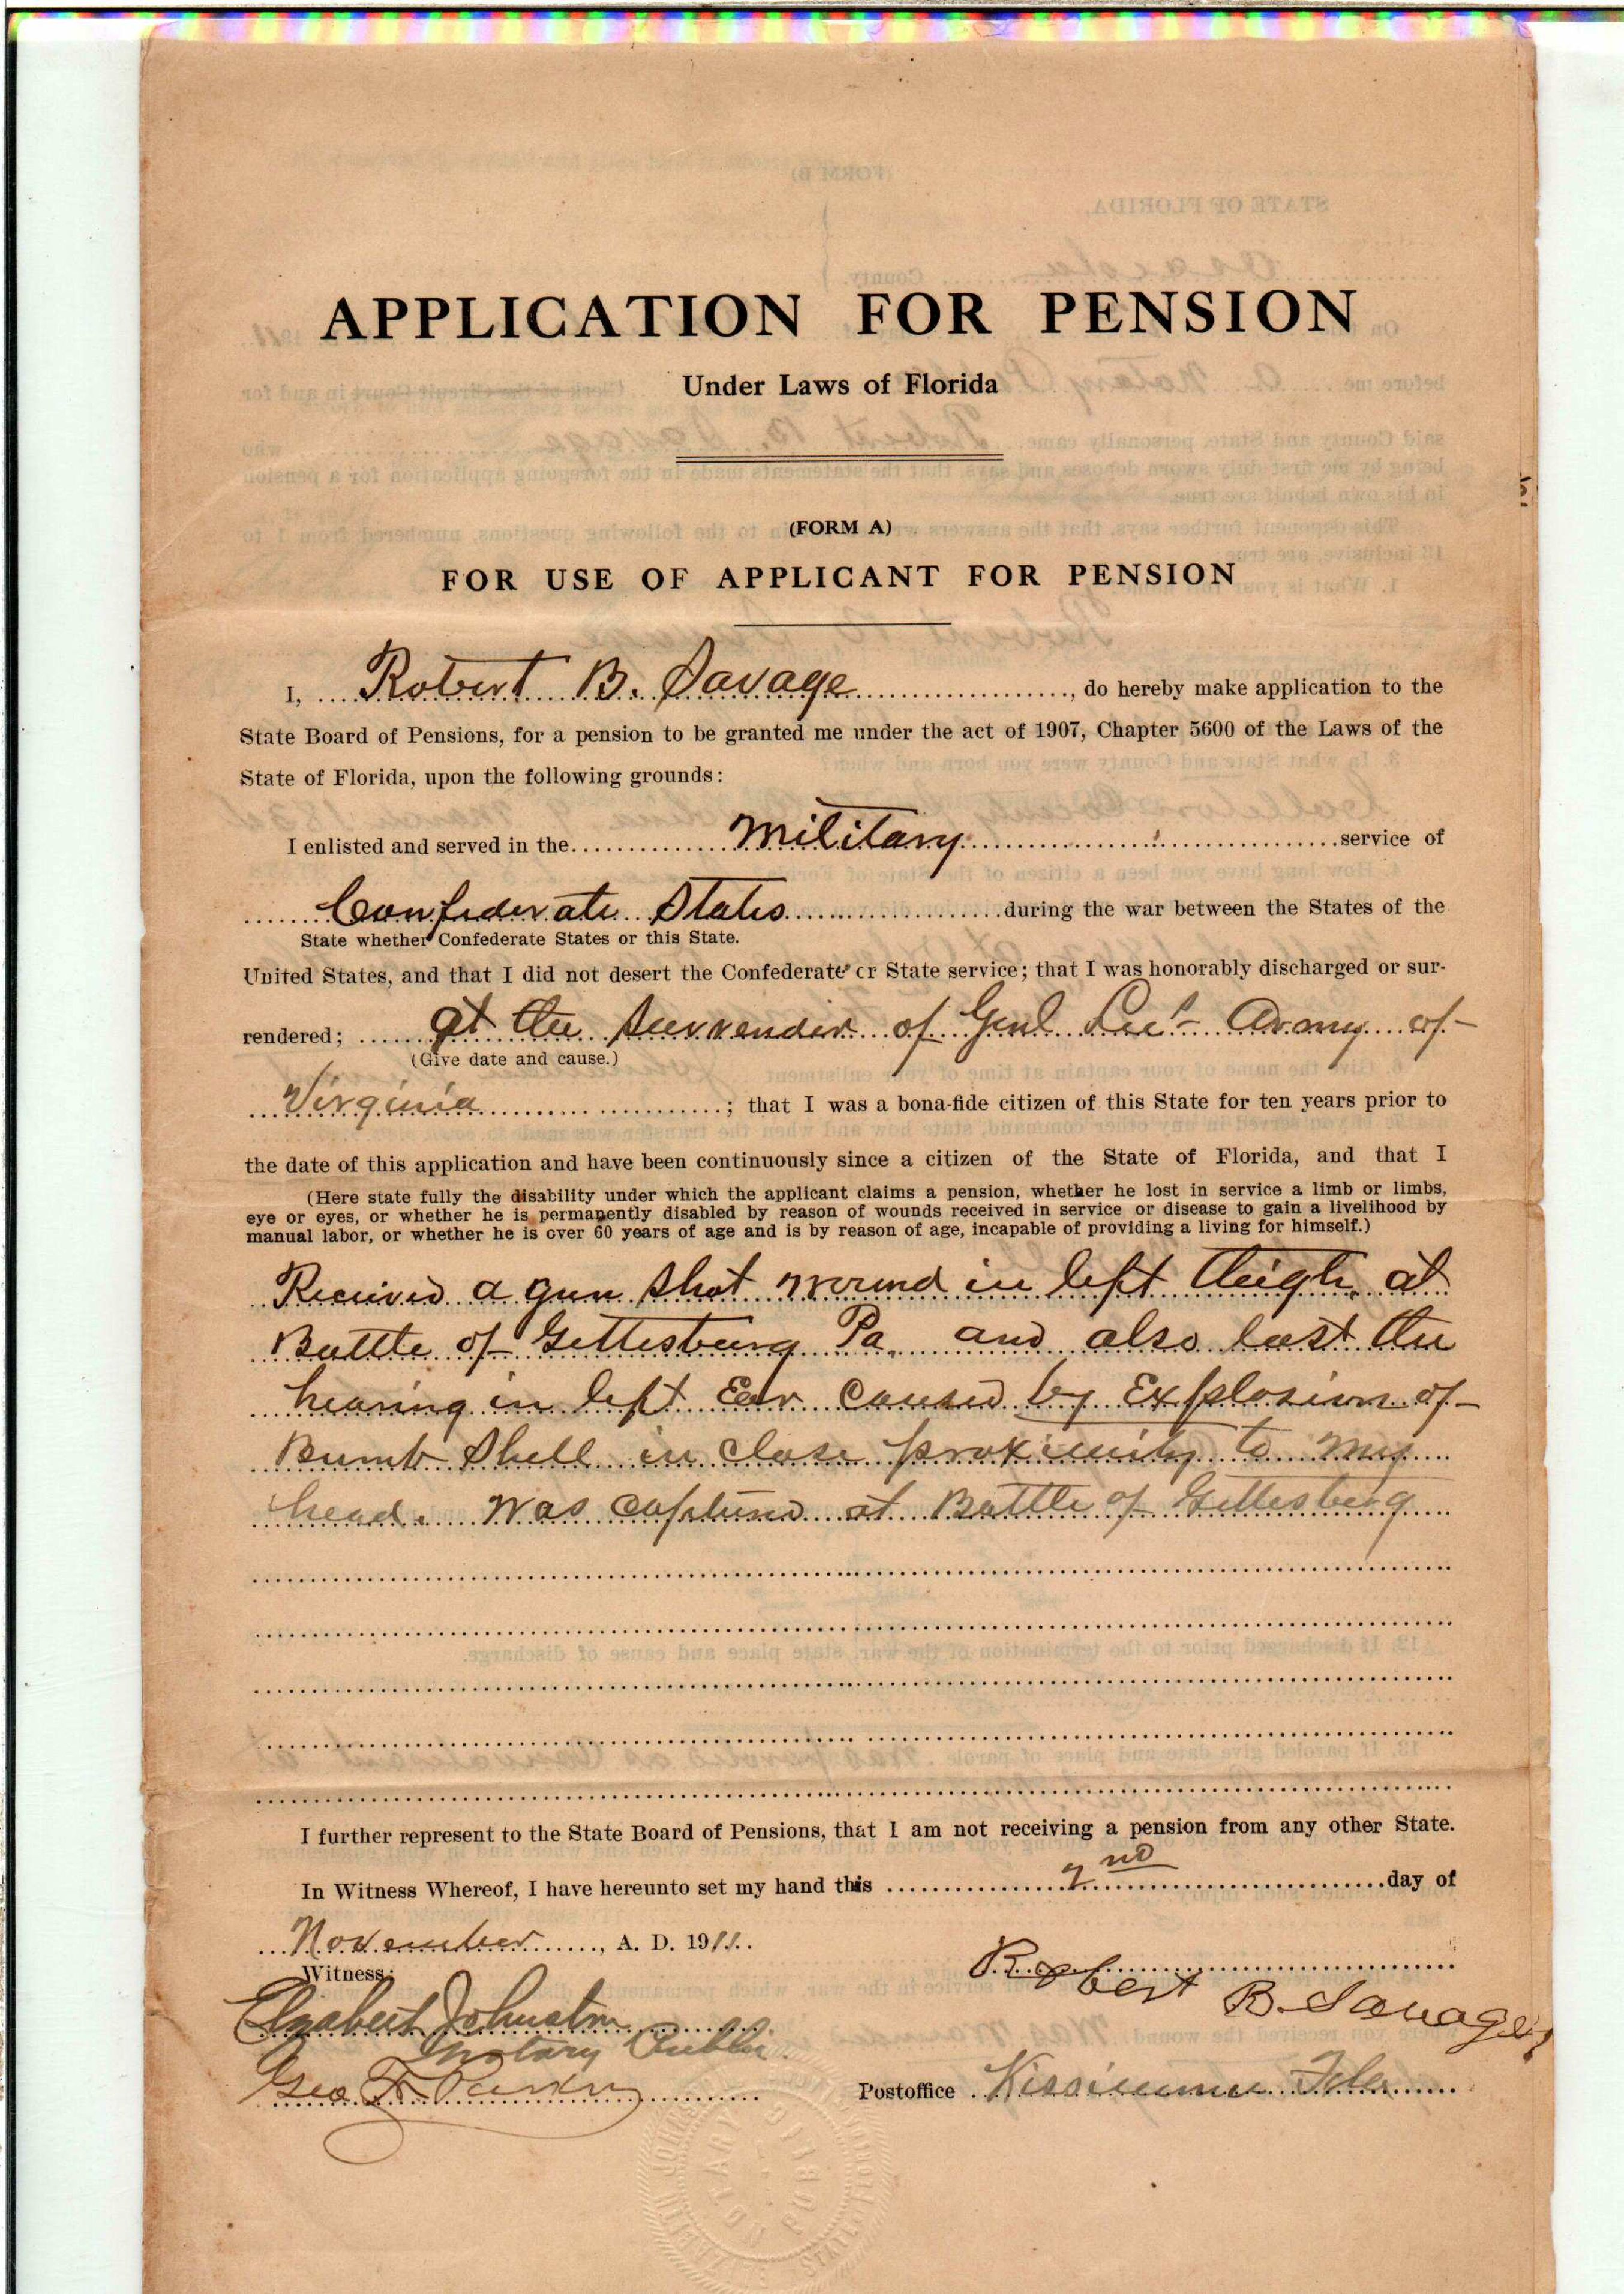 APPLICATION FOR PENSION
Under Laws of Florida
(FORM A)
FOR USE OF APPLICANT FOR PENSION
I, Robert B. Savage, do hereby make application to the
State Board of Pensions, for a pension to be granted me under the act of 1907, Chapter 5600 of the Laws of the
State of Florida, upon the following grounds:
I enlisted and served in the Military service of
Confederate States during the war between the States of the
State whether Confederate States or this State.
United States, and that I did not desert the Confederate or State service; that I was honorably discharged or sur-
rendered; at the surrender of Genl Lee's Army of
(Give date and cause.)
Virginia; that I was a bona-fide citizen of this State for ten years prior to
the date of this application and have been continuously since a citizen of the State of Florida, and that I
(Here state fully the disability under which the applicant claims a pension, whether he lost in service a limb or limbs,
eye or eyes, or whether he is permanently disabled by reason of wounds received in service or disease to gain a livelihood by
manual labor, or whether he is over 60 years of age and is by reason of age, incapable of providing a living for himself.)
Received a gun shot wound in left thigh, at
Battle of Gettesburg Pa. and also lost the
hearing in left Ear caused by Explosion of
Bumb Shell in close proximity to my
head. Was captured at Battle of Gettesberg
I further represent to the State Board of Pensions, that I am not receiving a pension from any other State.
In Witness Whereof, I have hereunto set my hand this 2nd day of
November, A. D. 1911.
Witness:
Robert B. Savage
Elizabeth Johnston
Notary Public.
Geo F. 
Postoffice Kissimmee Fla